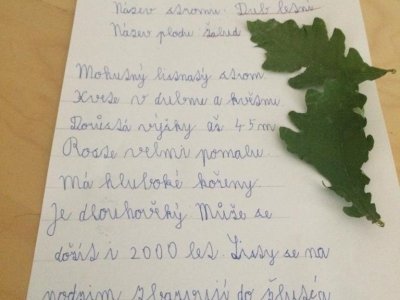 Název stromu: Dub letní
Název plodu: žalud
Mohutný listnatý strom
Kvete v dubnu a květnu.
Dorůstá výšky až 45 m
Roste velmi pomalu.
Má hluboké kořeny.
Je dlouhověký Může se
dožít i 2000 let. Listy se na
podzim zbarvují do žluta